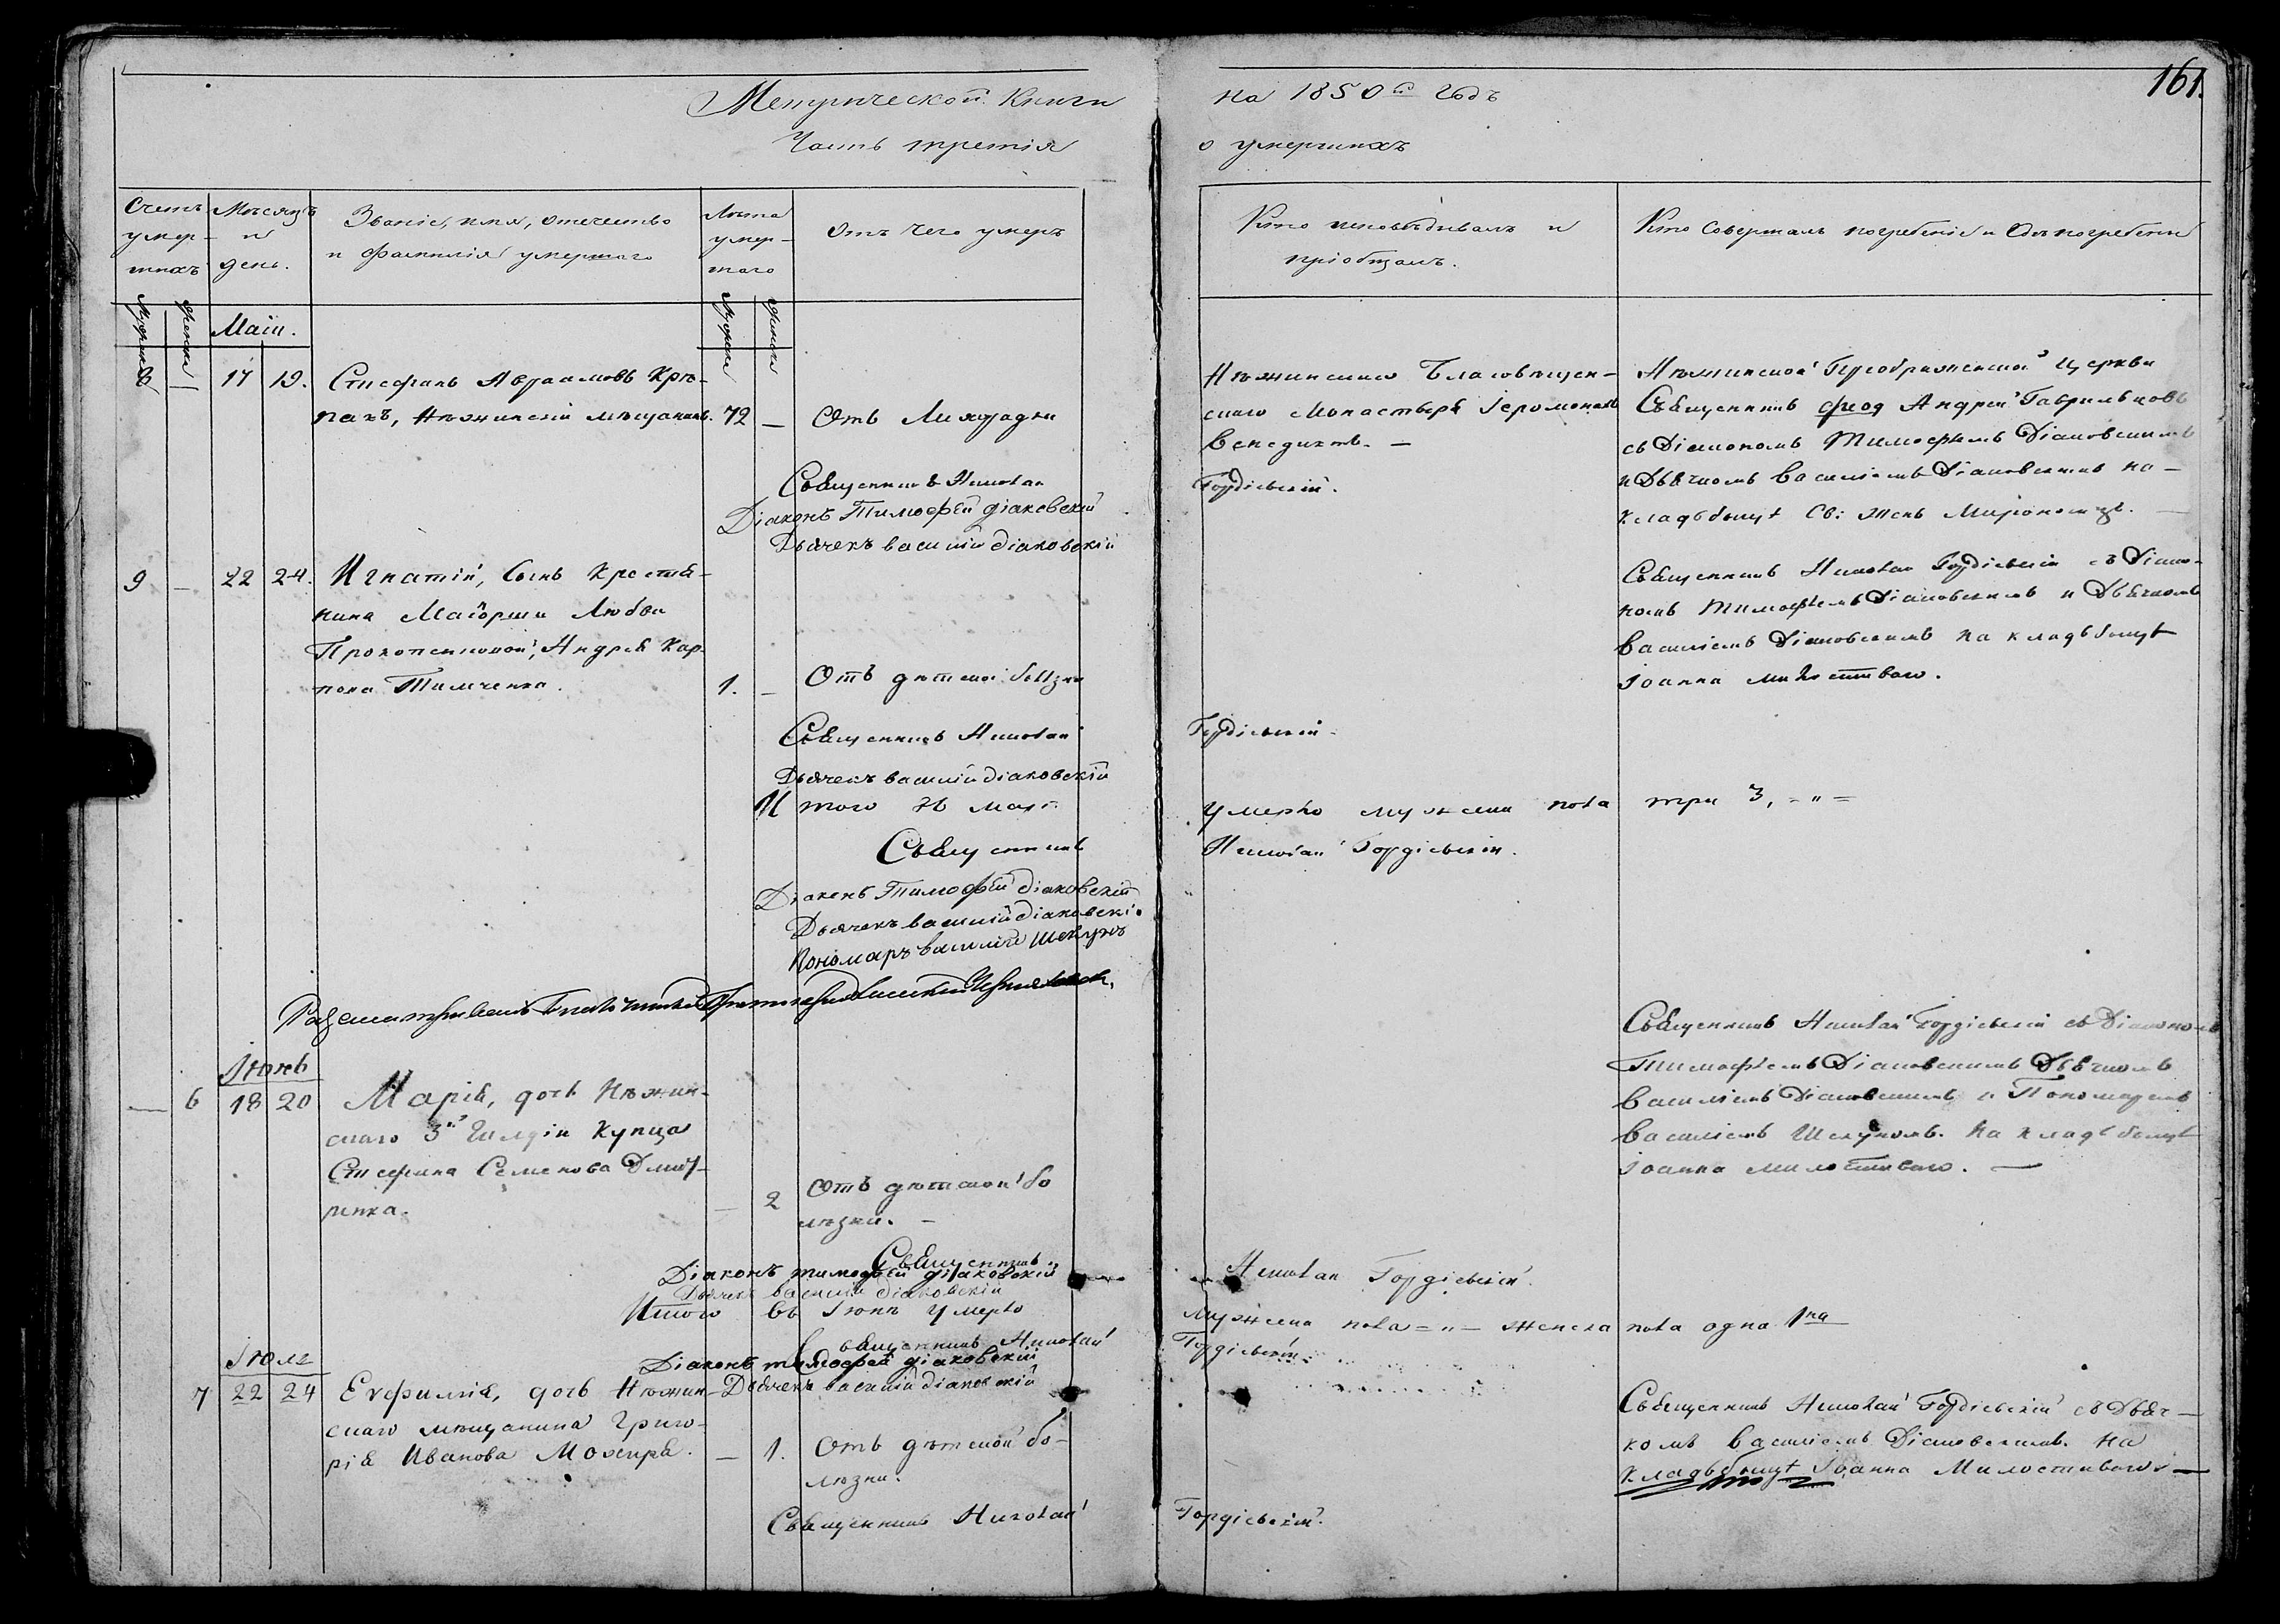 161.
Метрической Книги на 1850й Годъ
Часть третія о умершихъ
Счетъ умер-шихъ
Мѣсяцъ и день.
Званіе, имя, отечество и фамилія умершаго
Лѣта умер-шаго
Отъ чего умеръ
Кто исповѣдывалъ и пріобщалъ.
Кто совершалъ погребеніе и Гдѣ погребены
Мужеска Женска
Мужска Женска
Маіи.
8 — 17 19. Стефанъ Авраамовъ Кро-
пахъ, Нѣжинскій мѣщанинъ. 72 — Отъ Лихорадки
Нѣжинскаго Благовѣщен-
скаго Монастыря Іеромонахъ
Венедиктъ. —
Нѣжинской Преображенской Церкви
Священникъ Андрей Гаврильцовъ
съ Діакономъ Тимофеемъ Діаковскимъ
и Дьячкомъ Василіемъ Діаковскимъ на —
кладьбищѣ Св: Женъ Мироносицъ. —
Священникъ Николай Гордіевскій.
Діаконъ Тимофей Діаковскій
Дьячекъ Василій Діаковскій
9 — 22 24. Игнатій, Сынъ Крестья-
нина Маіорши Любви
Прокопенковой, Андрея Кар-
пова Тимченка. 1. — Отъ дѣтской болѣзни
Священникъ Николай Гордіевскій съ Діако-
номъ Тимофеемъ Діаковскимъ и Дьячкомъ
Василіемъ Діаковскимъ на кладьбищѣ
Іоанна Милостиваго.
Священникъ Николай Гордіевскій.
Дьячекъ Василій Діаковскій
Итого въ Маѣ умерло мужеска пола три 3, = " =
Священникъ Николай Гордіевскій.
Діаконъ Тимофей Діаковскій
Дьячекъ Василій Діаковскій
Пономаръ Василій Шекунъ
Разсматривалъ Благочинный
Іюнь
— 6 18 20 Марія, дочь Нѣжин-
скаго 3й Гилдіи Купца
Стефана Семенова Дмит-
ренка. — 2 Отъ дѣтской бо
лѣзни. —
Священникъ Николай Гордіевскій съ Діакономъ
Тимофеемъ Діаковскимъ Дьячкомъ
Василіемъ Діаковскимъ и Пономаремъ
Василіемъ Шекуномъ. На кладьбищѣ
Іоанна Милостиваго. —
Священникъ Николай Гордіевскій.
Діаконъ Тимофей Діаковскій
Дьячекъ Василій Діаковскій
Итого въ Іюнѣ Умерло Мужеска пола = " — женска пола одна 1на
Священникъ Николай Гордіевскій
Діаконъ Тимофей Діаковскій
Дьячекъ Василій Діаковскій
Іюля
7 22 24 Евфимія, дочь Нѣжин-
скаго мѣщанина Григо-
рія Иванова Мокиря. — 1. Отъ дѣтской бо-
лѣзни.
Священникъ Николай Гордіевскій съ Дьяч—
комъ Василіемъ Діаковскимъ. На
кладьбищѣ Іоанна Милостиваго. —
Священникъ Николай Гордіевскій.